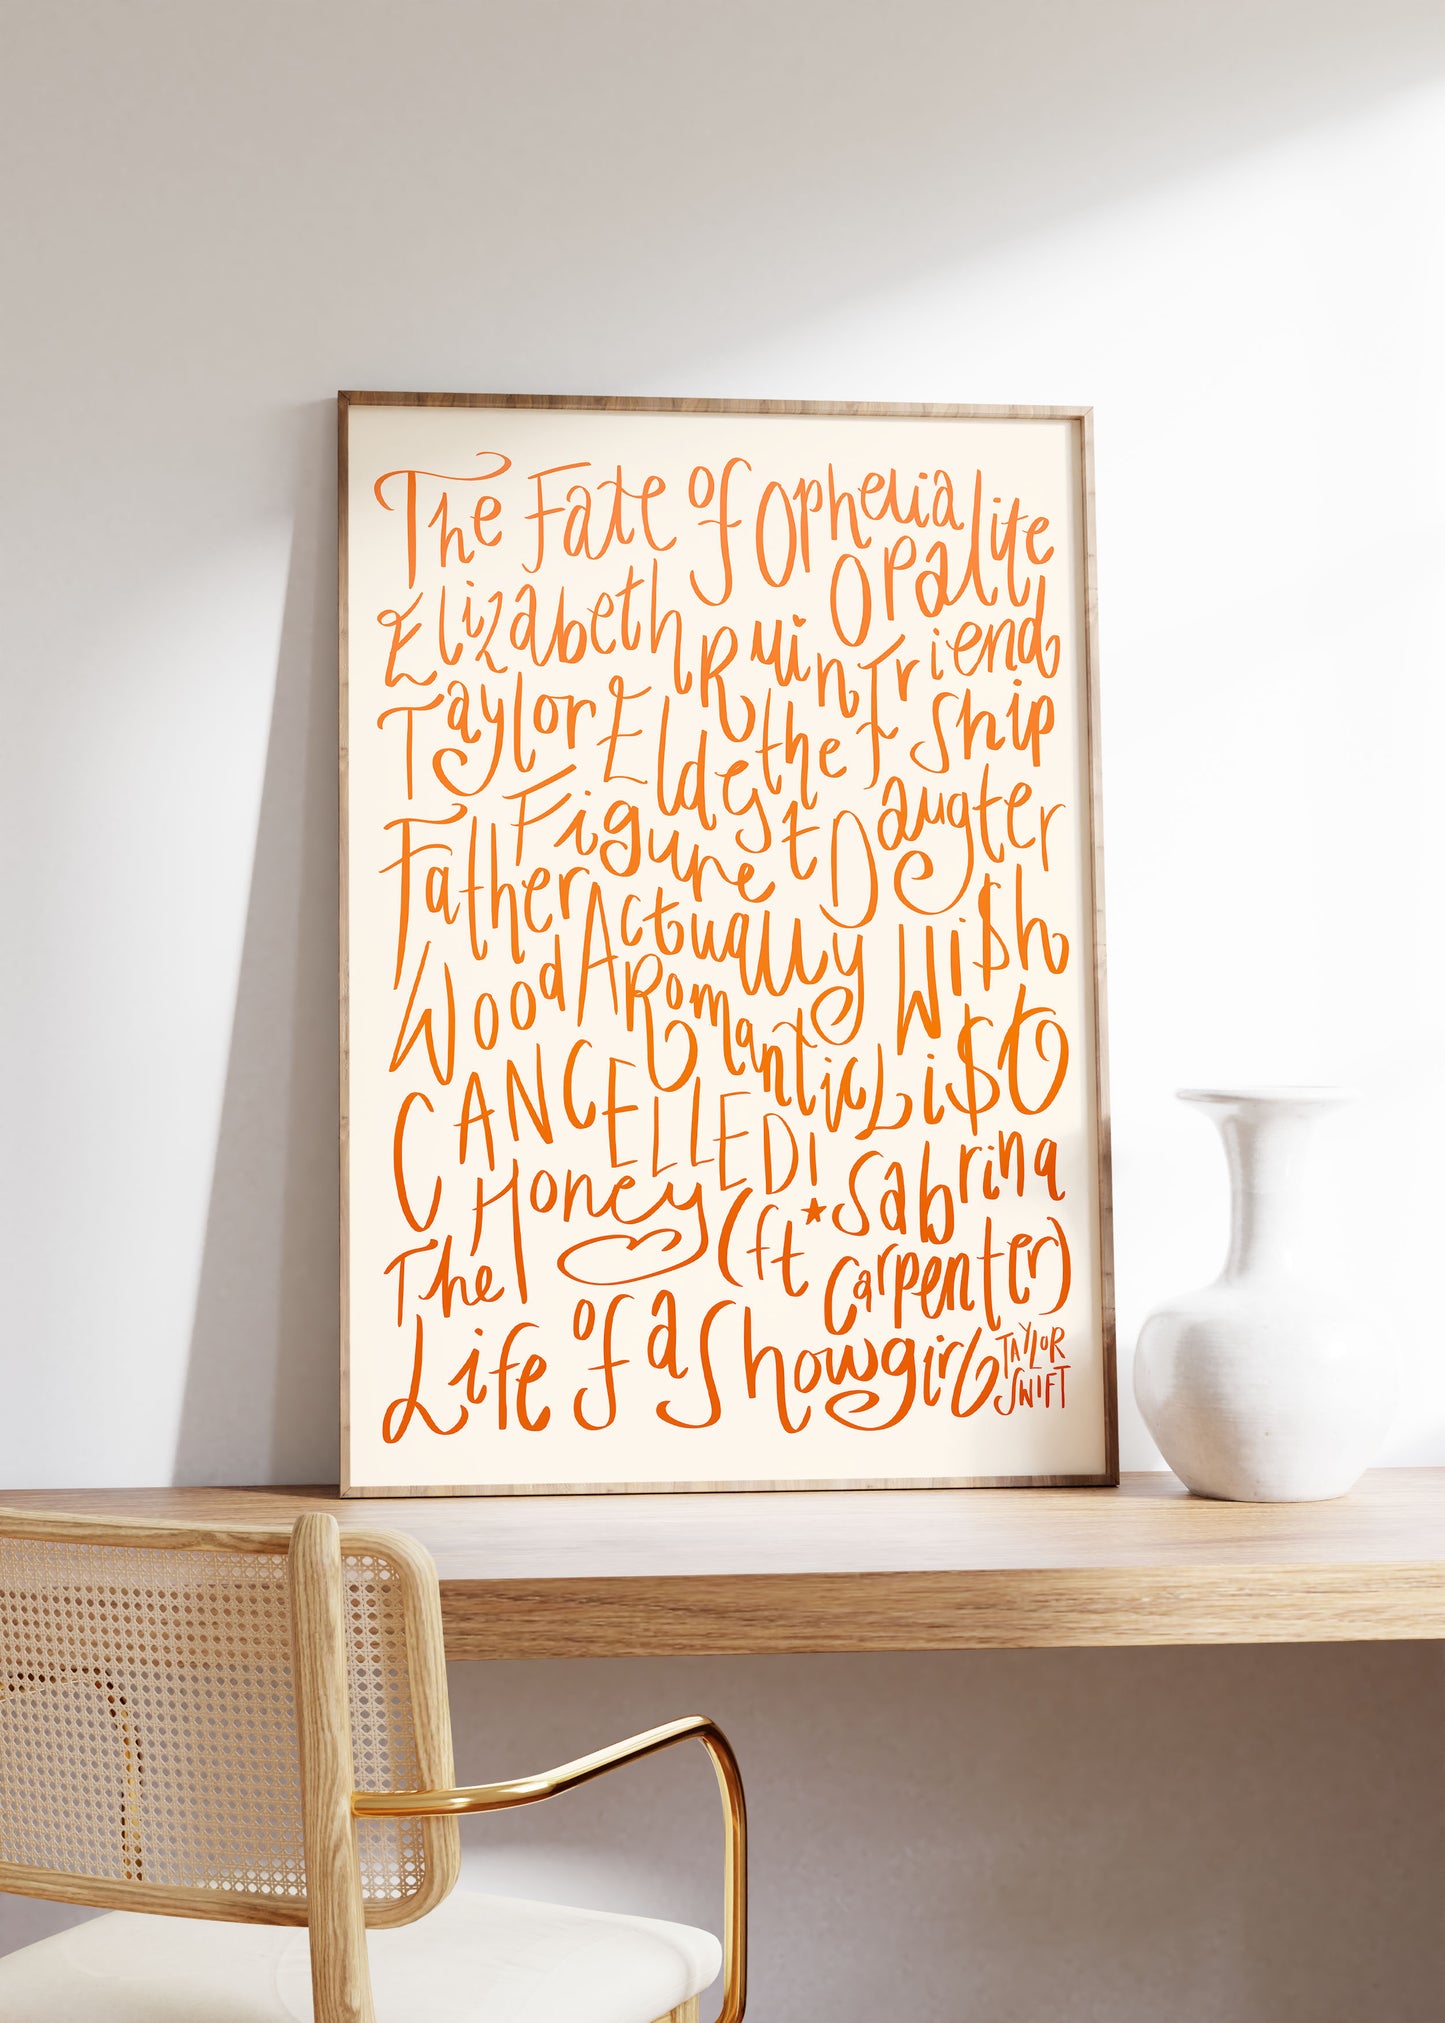 The Fate of Ophelia
Opalite
Elizabeth
Taylor
Ruin
the Friend
Ship
Eldest Daugter
Father
Figure
Actually
Romantic
Wi$h
Li$t
Wood
CANCELLED!
Honey
(ft * Sabrina
Carpenter)
The
Life of a Showgirl
TAYLOR
SWIFT